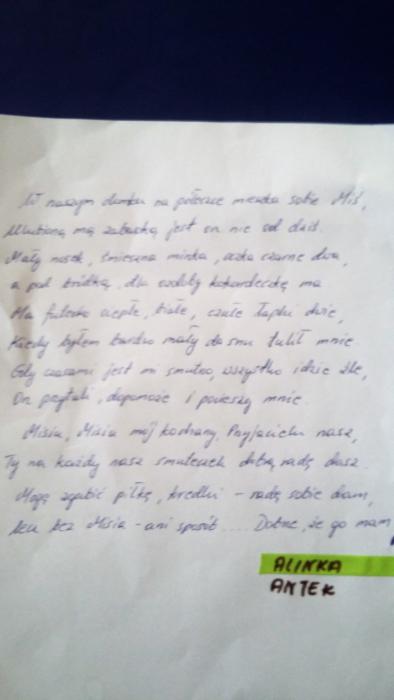 W naszym domku na półeczce mieszka sobie Miś,
Ulubioną mą zabawką jest on nie od dziś.
Mały nosek, śmieszna minka, oczka czarne dwa,
a pod bródką, dla ozdoby kokardeczkę ma
Ma futerko ciepłe, białe, czułe łapki dwie,
Kiedy byłem bardzo mały do snu tulił mnie.
Gdy czasami jest mi smutno, wszystko idzie źle,
On przytuli, dopomoże i pocieszy mnie.
Misiu, Misiu mój kochany, Przyjacielu nasz,
Ty na każdy nasz smuteczek dobrą radę dasz.
Mogę zgubić piłkę, kredki - radę sobie dam,
lecz bez Misia - ani sposób .... Dobrze, że go mam
ALINKA
ANTEK